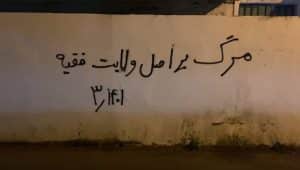 مرگ بر اصل ولایت فقیه
۳٫۱۴۰۱